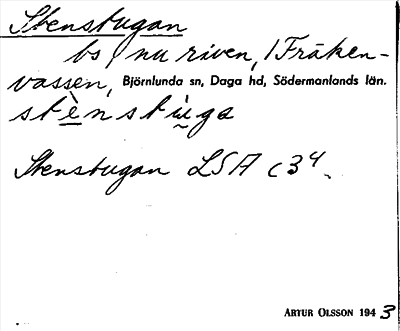 Stenstugan
bs, nu riven, / Fräken-
vassen, Björnlunda sn, Daga hd, Södermanlands län.
stènstùga
Stenstugan LSA c 34
ARTUR OLSSON 1943